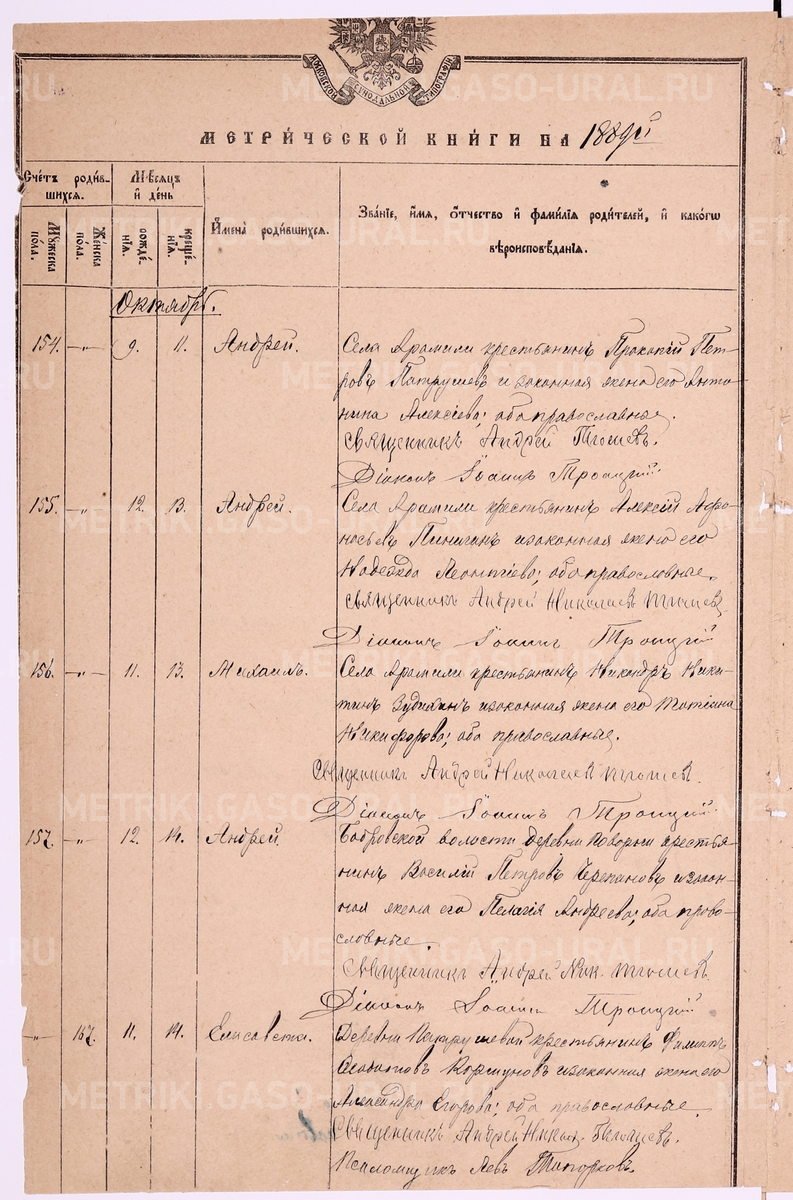 МОСКОВСКОЙ СУНОДАЛЬНОЙ ТИПОГРАФІИ
МЕТРИ́ЧЕСКОЙ КНИ́ГИ НА 1889й
Сче́тъ роди́вшихся.
Мꙋ́жеска по́ла.
Же́нска по́ла.
Мѣ́сяцъ и҆ де́нь
рожде́нїя.
креще́нїя.
И҆мена̀ роди́вшихся.
Зва́нїе, и҆́мя, ѻ҆́тчество и҆ фами́лїя роди́телей, и҆ како́гѡ
вѣроисповѣ́данїя.
Октябрь.
154. -„- 9. 11. Андрей. Села Арамили крестьянинъ Прокопій Пет-
ровъ Патрушевъ и законная жена его Анто-
нина Алексіева; оба православные.
Священникъ Андрей
Діаконъ Іоаннъ Троицкій
155. -„- 12. 13. Андрей. Села Арамили крестьянинъ Алексій Афо-
насьевъ Пинигинъ и законная жена его
Надежда Леонтіева; оба православные.
Священникъ Андрей Николаевъ
Діаконъ Іоаннъ Троицкій
156. -„- 11. 13. Михаилъ. Села Арамили крестьянинъ Никандръ Ники-
тинъ и законная жена его Татіана
Никифорова; оба православные.
Священникъ Андрей Николаевъ
Діаконъ Іоаннъ Троицкій
157. -„- 12. 14. Андрей. Бобровской волости деревни крестья-
нинъ Василій Петровъ Черепановъ и закон-
ная жена его Пелагія Андреева; оба право-
славные.
Священникъ Андрей Ник.
Діаконъ Іоаннъ Троицкій
-„- 167. 11. 14. Елисавета. Деревни крестьянинъ
Кормуновъ и законная жена его
Александра Егорова; оба православные.
Священникъ Андрей
Псаломщикъ Левъ Топорковъ.
METRIKI.GASO-URAL.RU